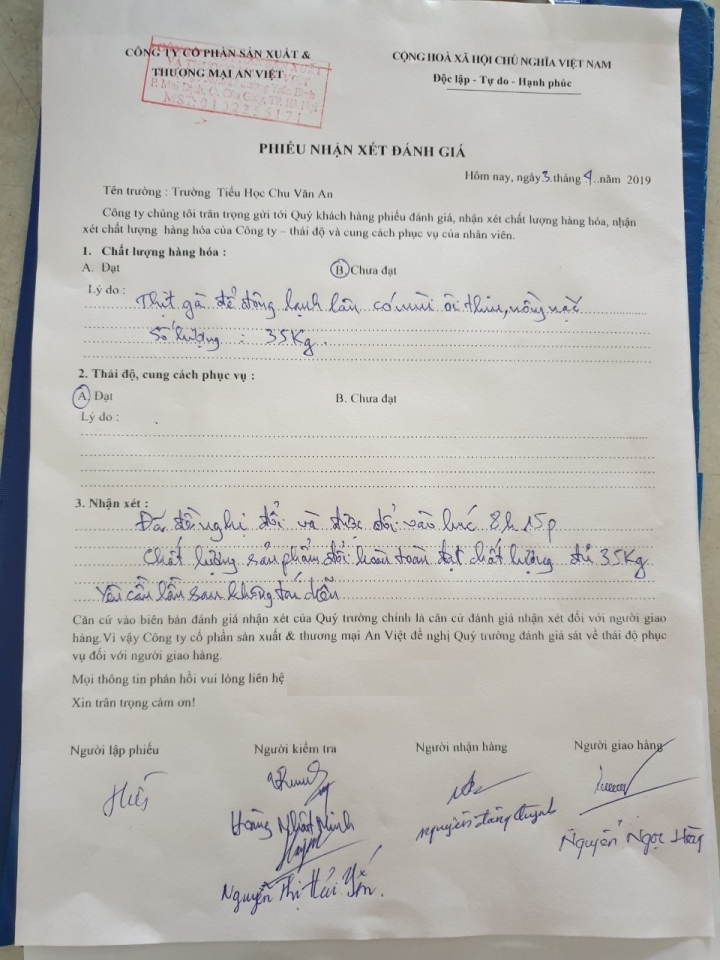 CÔNG TY CỔ PHẦN SẢN XUẤT &
THƯƠNG MẠI AN VIỆT
CỘNG HOÀ XÃ HỘI CHỦ NGHĨA VIỆT NAM
Độc lập - Tự do - Hạnh phúc
P. Mai Dịch, Q. Cầu Giấy, TP. Hà Nội
PHIẾU NHẬN XÉT ĐÁNH GIÁ
Hôm nay, ngày 3 tháng 4 năm 2019
Tên trường : Trường Tiểu Học Chu Văn An
Công ty chúng tôi trân trọng gửi tới Quý khách hàng phiếu đánh giá, nhận xét chất lượng hàng hóa, nhận
xét chất lượng hàng hóa của Công ty – thái độ và cung cách phục vụ của nhân viên.
1. Chất lượng hàng hóa :
A. Đạt B. Chưa đạt
Lý do : Thịt gà để đông lạnh lâu có mùi ôi thiu, nồng nặc
Số lượng : 35Kg.
2. Thái độ, cung cách phục vụ :
A. Đạt B. Chưa đạt
Lý do :
3. Nhận xét :
Đã đề nghị đổi và được đổi vào lúc 8h15p
Chất lượng sản phẩm đổi hoàn toàn đạt chất lượng đủ 35Kg
Yêu cầu lần sau không tái diễn
Căn cứ vào biên bản đánh giá nhận xét của Quý trường chính là căn cứ đánh giá nhận xét đối với người giao
hàng.Vì vậy Công ty cổ phần sản xuất & thương mại An Việt đề nghị Quý trường đánh giá sát về thái độ phục
vụ đối với người giao hàng.
Mọi thông tin phản hồi vui lòng liên hệ
Xin trân trọng cảm ơn!
Người lập phiếu Người kiểm tra Người nhận hàng Người giao hàng
Hoàng Nhật Minh
Nguyễn Đăng Quỳnh
Nguyễn Ngọc
Nguyễn Thị Hải Yến.